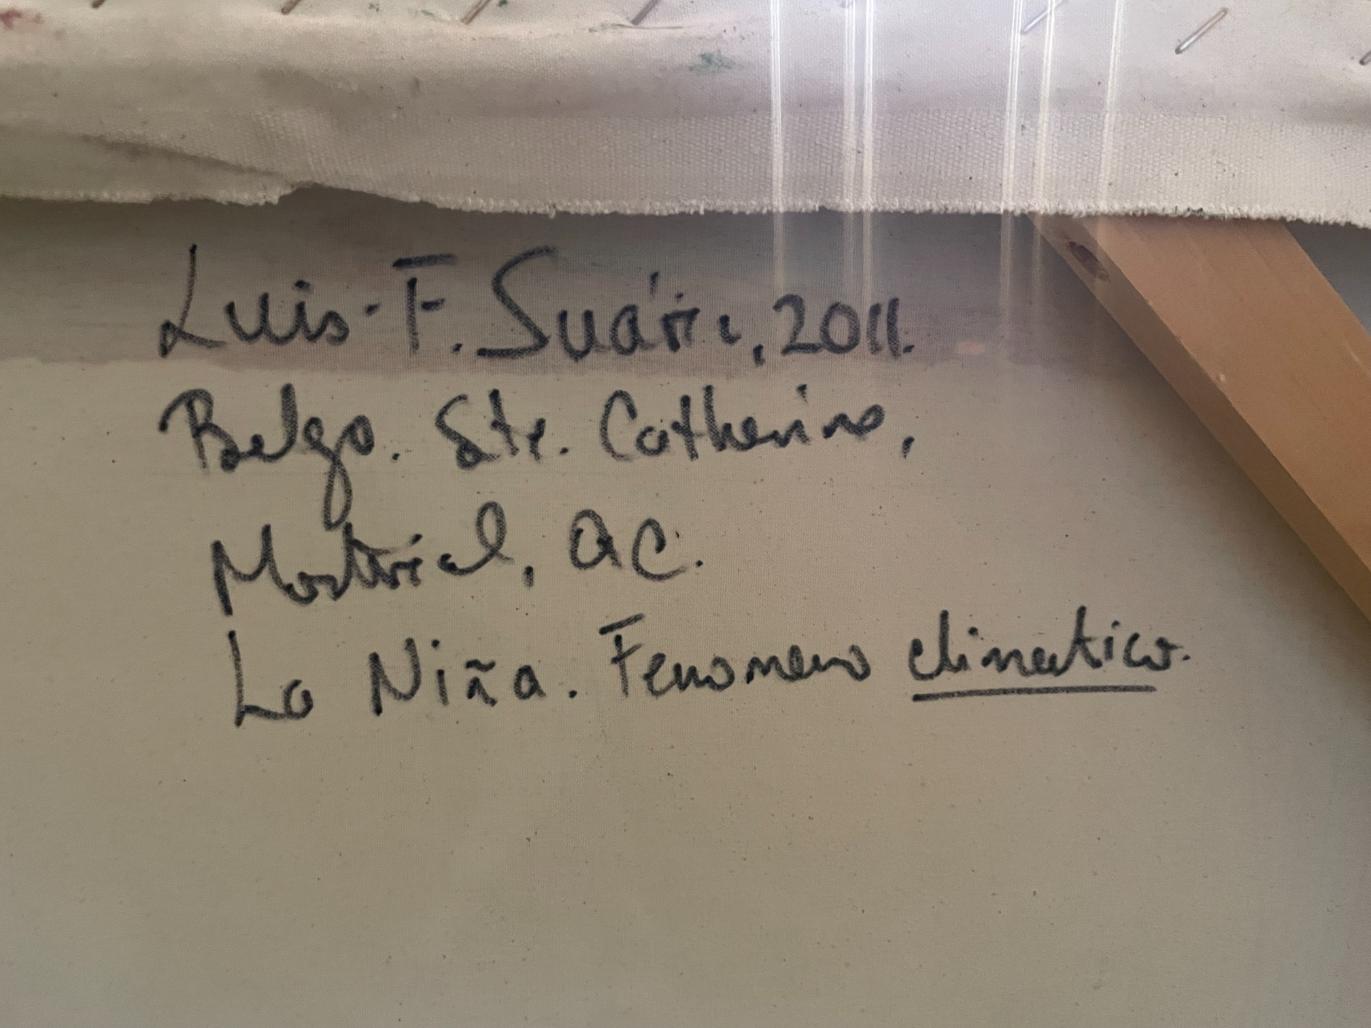 Luis-F. Suárez, 2011.
Belgo. Ste. Catherine,
Montreal, QC.
La Niña. Fenomeno climatico.